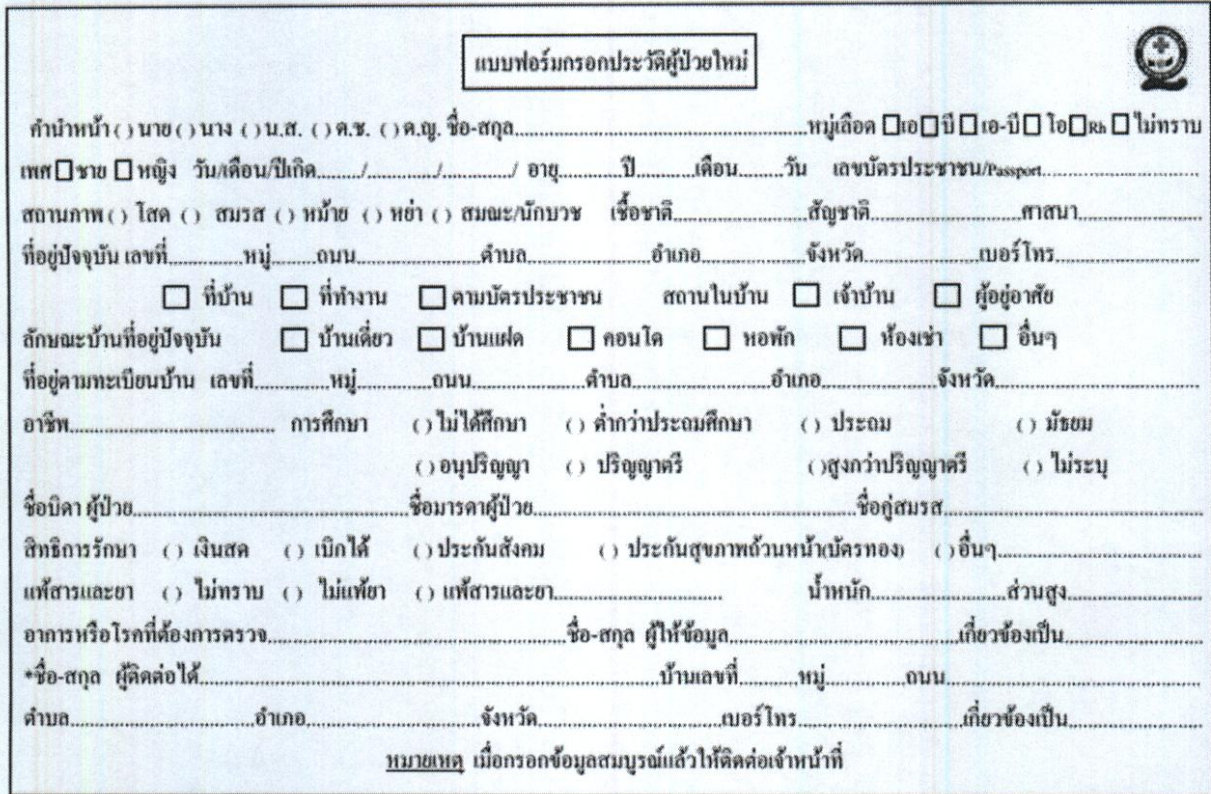 แบบฟอร์มกรอกประวัติผู้ป่วยใหม่
คำนำหน้า ( ) นาย ( ) นาง ( ) น.ส. ( ) ด.ช. ( ) ด.ญ. ชื่อ-สกุล....................หมู่เลือด □ เอ □ บี □ เอ-บี □ โอ □ Rh □ ไม่ทราบ
เพศ □ ชาย □ หญิง วัน/เดือน/ปีเกิด........./............/............../ อายุ.........ปี...........เดือน.........วัน เลขบัตรประชาชน/Passport....................
สถานภาพ ( ) โสด ( ) สมรส ( ) หม้าย ( ) หย่า ( ) สมณะ/นักบวช เชื้อชาติ....................สัญชาติ....................ศาสนา....................
ที่อยู่ปัจจุบัน เลขที่..............หมู่........ถนน....................ตำบล....................อำเภอ....................จังหวัด....................เบอร์โทร....................
□ ที่บ้าน □ ที่ทำงาน □ ตามบัตรประชาชน สถานในบ้าน □ เจ้าบ้าน □ ผู้อยู่อาศัย
ลักษณะบ้านที่อยู่ปัจจุบัน □ บ้านเดี่ยว □ บ้านแฝด □ คอนโด □ หอพัก □ ห้องเช่า □ อื่นๆ
ที่อยู่ตามทะเบียนบ้าน เลขที่..............หมู่..............ถนน....................ตำบล....................อำเภอ....................จังหวัด....................
อาชีพ.................... การศึกษา ( ) ไม่ได้ศึกษา ( ) ต่ำกว่าประถมศึกษา ( ) ประถม ( ) มัธยม
( ) อนุปริญญา ( ) ปริญญาตรี ( ) สูงกว่าปริญญาตรี ( ) ไม่ระบุ
ชื่อบิดา ผู้ป่วย....................ชื่อมารดาผู้ป่วย....................ชื่อคู่สมรส....................
สิทธิการรักษา ( ) เงินสด ( ) เบิกได้ ( ) ประกันสังคม ( ) ประกันสุขภาพถ้วนหน้า(บัตรทอง) ( ) อื่นๆ....................
แพ้สารและยา ( ) ไม่ทราบ ( ) ไม่แพ้ยา ( ) แพ้สารและยา.................... น้ำหนัก....................ส่วนสูง....................
อาการหรือโรคที่ต้องการตรวจ....................ชื่อ-สกุล ผู้ให้ข้อมูล....................เกี่ยวข้องเป็น....................
*ชื่อ-สกุล ผู้ติดต่อได้....................บ้านเลขที่............หมู่............ถนน....................
ตำบล....................อำเภอ....................จังหวัด....................เบอร์โทร....................เกี่ยวข้องเป็น....................
หมายเหตุ เมื่อกรอกข้อมูลสมบูรณ์แล้วให้ติดต่อเจ้าหน้าที่